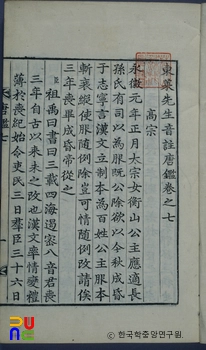 東萊先生音註唐鑑卷之七
高宗
永徽元年正月太宗女衡山公主應適長
孫氏有司以為服既公除欲以今秋成昏
于志寧言漢文立制本為天下百姓公主服本
斬衰縱使服隨例除豈可情隨例改請俟
三年喪畢成昏帝從之
祖禹曰書曰三載四海遏密八音君喪
三年自古以來未之改也漢文率情變禮
薄於喪紀始令吏民三日羣臣三十六日
唐鑑七
한국학중앙연구원